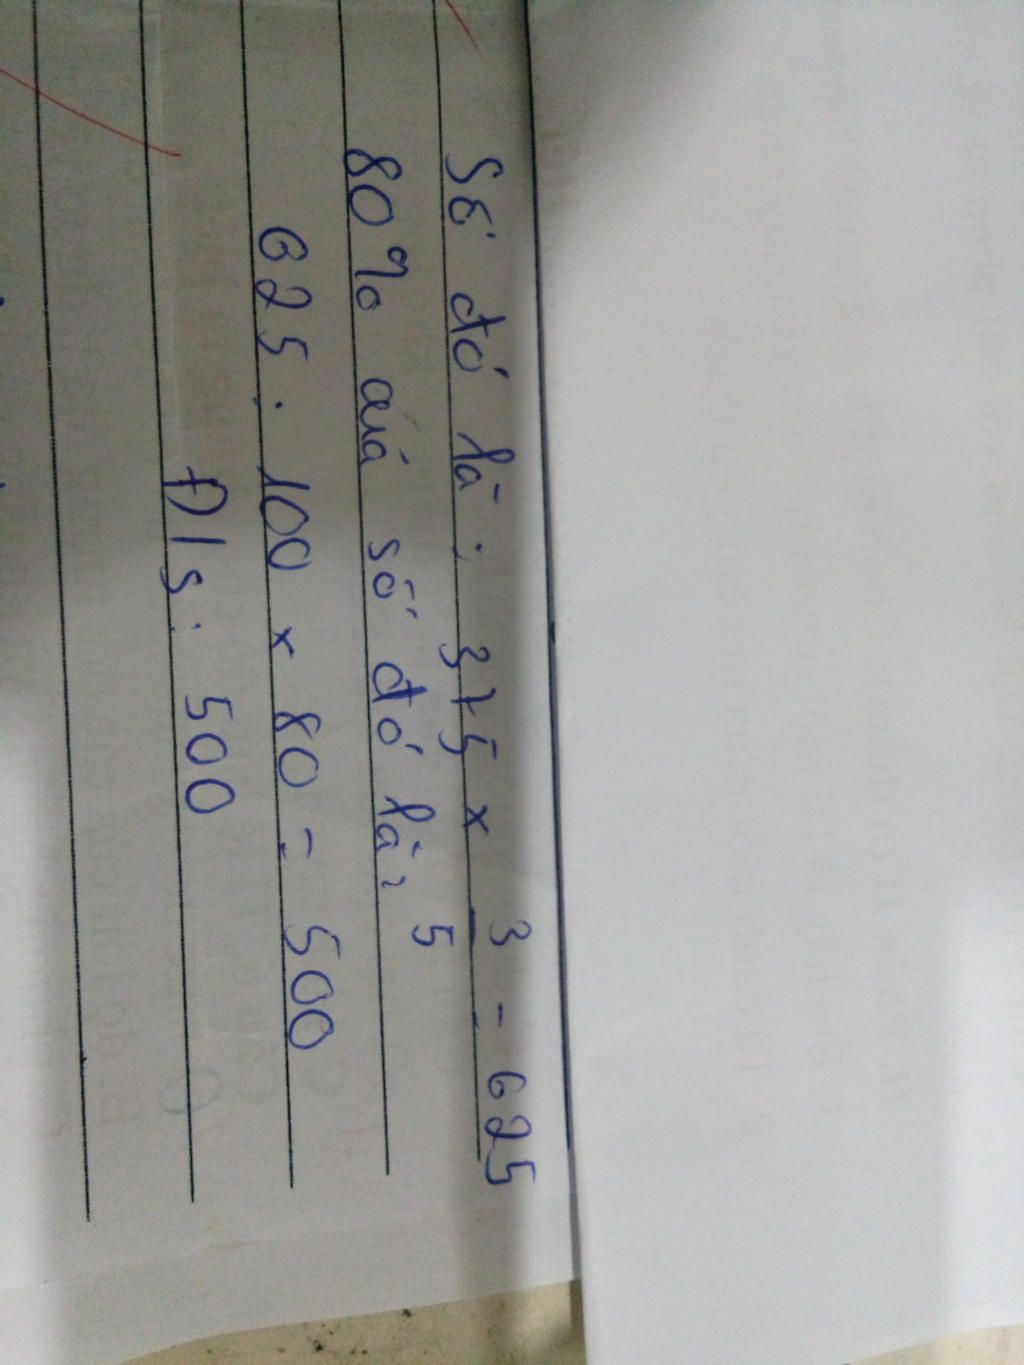 Số đó là: 375 x 3/5 = 625
80% của số đó là:
625 : 100 x 80 = 500
Đ/s: 500